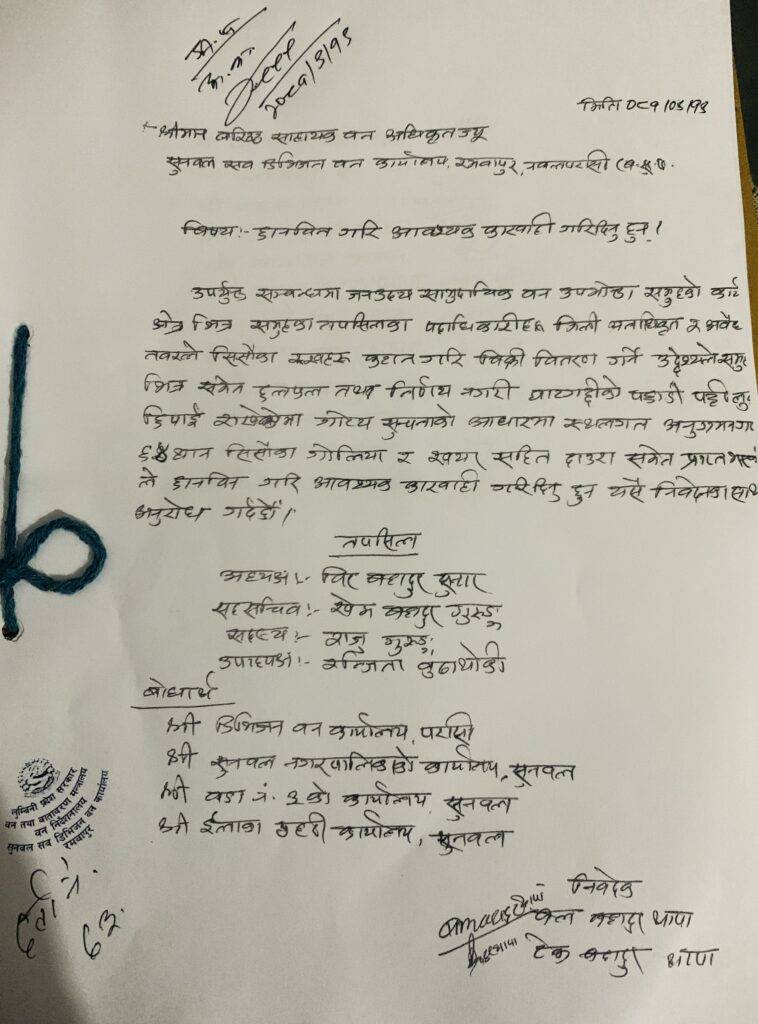 २०८१/३/१३
मिति ०८१/०३/१३
श्रीमान वरिष्ठ सहायक वन अधिकृत ज्यू
सुनवल सव डिभिजन वन कार्यालय, रमवापुर, नवलपरासी (ब.सु.प.
विषय:- छानविन गरि आवश्यक कारवाही गरिदिनु हुन।
उपर्युक्त सम्बन्धमा जनउदय सामुदायिक वन उपभोक्ता समुहको कार्य
क्षेत्र भित्र समुहका तपसिलका पदाधिकारीहरू मिली अनाधिकृत र अवैध
तवरले सिसौका रुखहरू कटान गरि विक्री वितरण गर्ने उद्देश्यले समुह
भित्र समेत छलफल तथा निर्णय नगरी पहाडी पट्टी
छिपाई राखेकोमा गोप्य सुचनाको आधारमा स्थलगत अनुगमन
थान सिसौका गोलिया र खयर सहित दाउरा समेत प्राप्त
ले छानविन गरि आवश्यक कारवाही गरिदिनु हुन यसै निवेदनका साथ
अनुरोध गर्दछौं।
तपसिल
अध्यक्ष:- विर बहादुर सुनार
सहसचिव:- खेम बहादुर गुरुङ्ग
सदस्य:- राजु गुरुङ्ग
उपाध्यक्ष:- रन्जिता बुढाथोकी
बोधार्थ
श्री डिभिजन वन कार्यालय, परासी
श्री सुनवल नगरपालिकाको कार्यालय, सुनवल
श्री वडा नं. ३ को कार्यालय, सुनवल
श्री ईलाका प्रहरी कार्यालय, सुनवल
लुम्बिनी प्रदेश सरकार
वन तथा वातावरण मन्त्रालय
वन निर्देशनालय
सुनवल सव डिभिजन वन कार्यालय
रमवापुर
निवेदक
बल बहादुर थापा
टेक बहादुर थापा